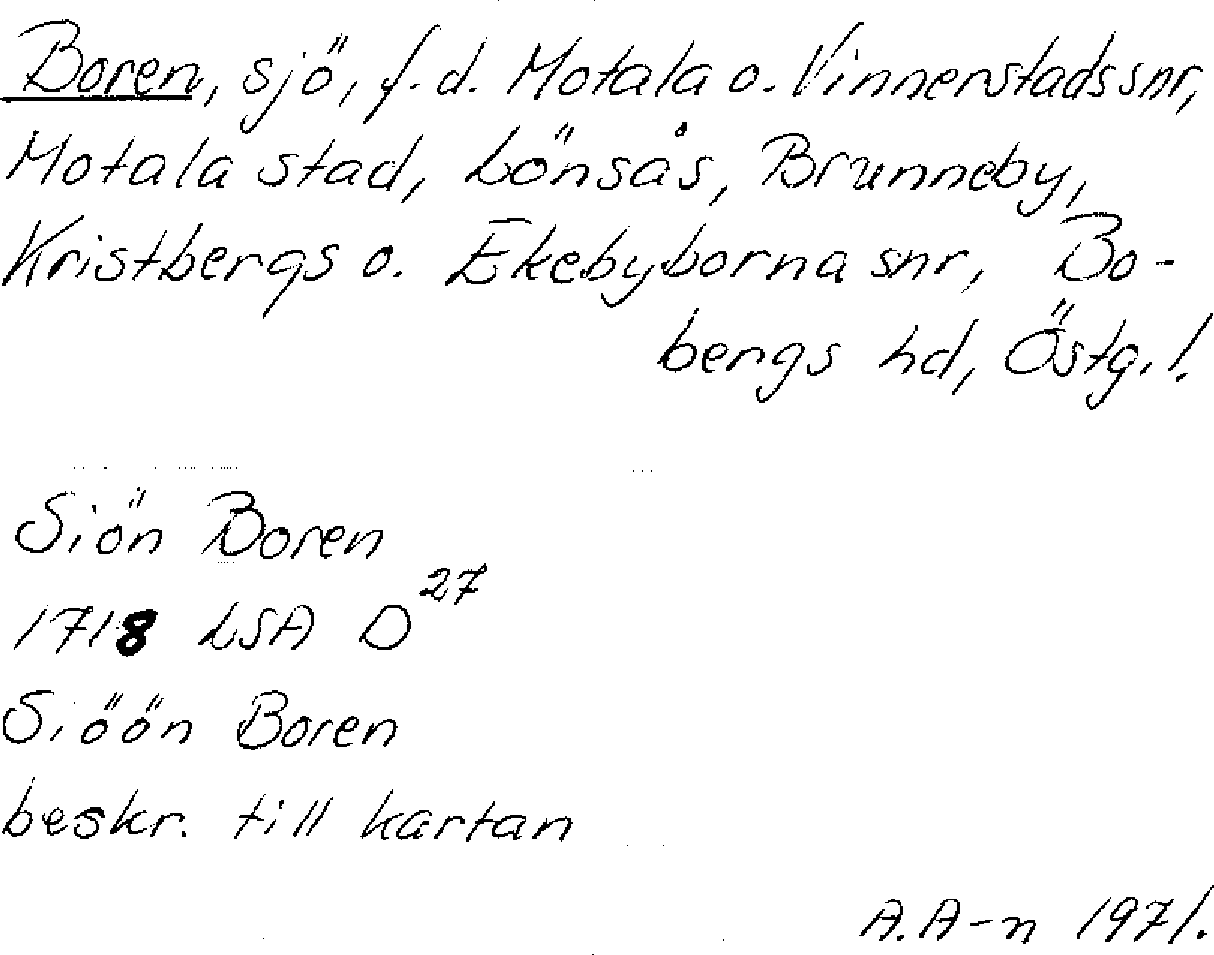 Boren, sjö, f.d. Motala o. Vinnerstads snr,
Motala stad, Lönsås, Brunneby,
Kristbergs o. Ekebyborna snr, Bo-
bergs hd, Östg.l.
Siön Boren
1718 LSA D27
Siöön Boren
beskr. till kartan
A.A-n 1971.